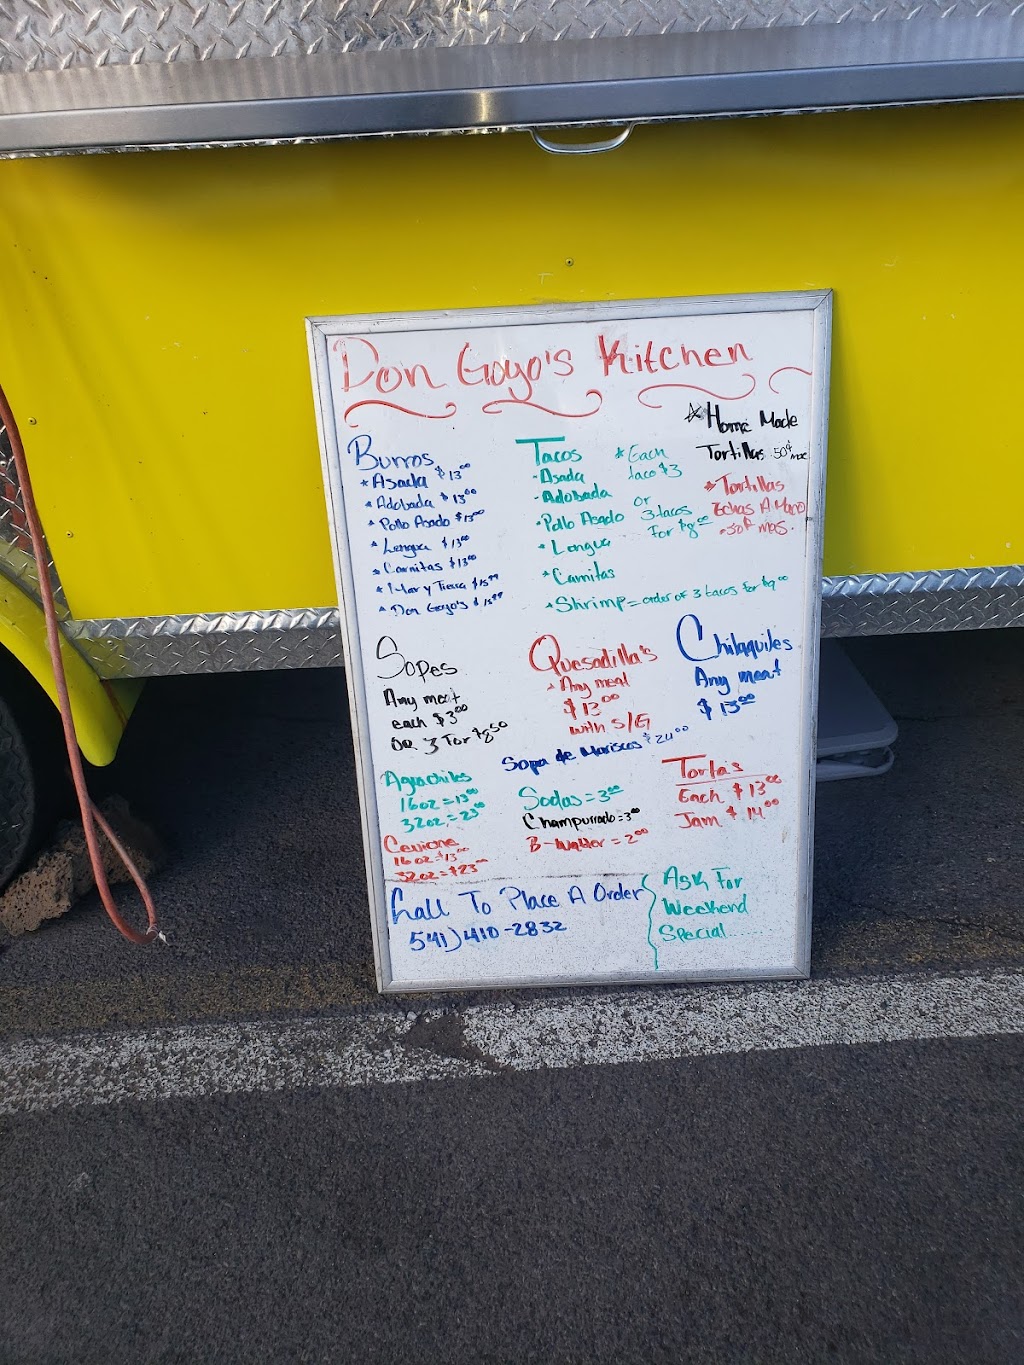 Don Goyo's Kitchen
Burros
* Asada $13.00
* Adobada $13.00
* Pollo Asado $13.00
* Lengua $13.00
* Carnitas $13.00
* Mar y Tierra $15.99
* Don Goyo's $15.99
Tacos
- Asada
- Adobada
- Pollo Asado
* Lengua
* Carnitas
* Shrimp = order of 3 tacos for $9.00
* Each
taco $3
or
3 tacos
For $8.00
* Home Made
Tortillas .50¢
* Tortillas
Echas A Mano
.50¢ mas.
Sopes
Any meat
each $3.00
OR 3 For $8.50
Quesadilla's
* Any meat
$13.00
with S/G
Chilaquiles
Any meat
$13.00
Sopa de Mariscos $24.00
Aguachiles
16oz = 13.00
32oz = 23.00
Ceviche
16oz = $13.00
32oz = $23.00
Sodas = 3.00
Champurrado = 3.00
B-Water = 2.00
Tortas
Each $13.00
Jam $14.00
Call To Place A Order
541) 410-2832
Ask For
Weekend
Special.......